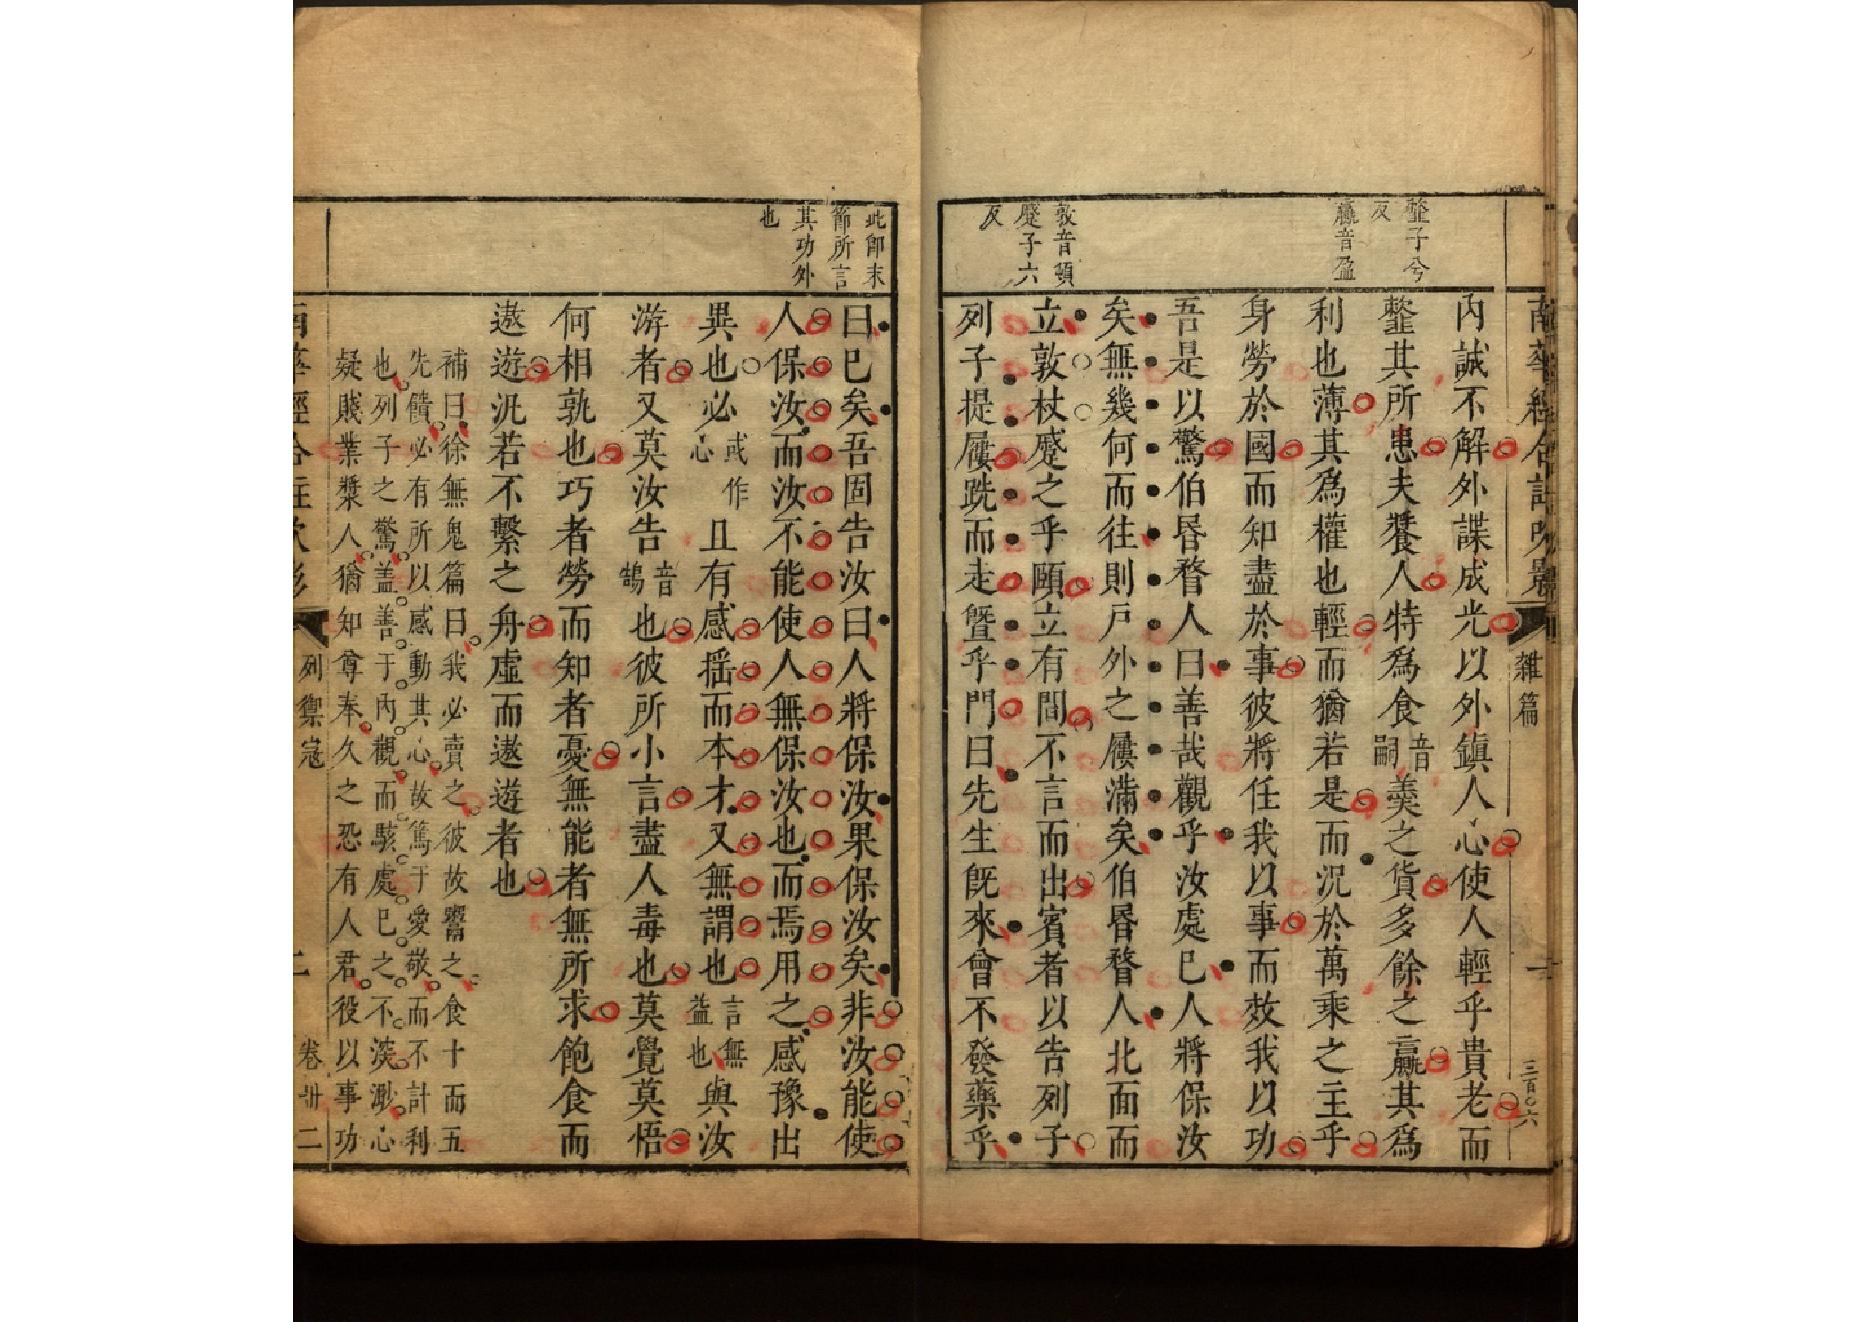 南華經合註吹影
雜篇
三百〇六
韲子兮
反
贏音盈
敦音頓
蹙子六
反
內誠不解外諜成光以外鎮人心使人輕乎貴老而
韲其所患夫饔人特為食音嗣羹之貨多餘之贏其為
利也薄其為權也輕而猶若是而況於萬乘之主乎
身勞於國而知盡於事彼將任我以事而效我以功
吾是以驚伯昏瞀人曰善哉觀乎汝處已人將保汝
矣無幾何而往則戶外之屨滿矣伯昏瞀人北面而
立敦杖蹙之乎頤立有間不言而出賓者以告列子
列子提屨跣而走暨乎門曰先生旣來曾不發藥乎
此卽末
節所言
其功外
也
曰已矣吾固告汝曰人將保汝果保汝矣非汝能使
人保汝而汝不能使人無保汝也而焉用之感豫出
異也必或作心且有感搖而本才又無謂也言無益也與汝
游者又莫汝告音鵠也彼所小言盡人毒也莫覺莫悟
何相孰也巧者勞而知者憂無能者無所求飽食而
遨遊汎若不繫之舟虛而遨遊者也
補曰徐無鬼篇曰我必賣之彼故鬻之食十而五
先饋必有所以感動其心故篤于愛敬而不計利
也列子之驚蓋善于內觀而駭處已之不淡漞心
疑賤業漿人猶知尊奉久之恐有人君役以事功
南華經合註吹影
列禦寇
二
卷卅二